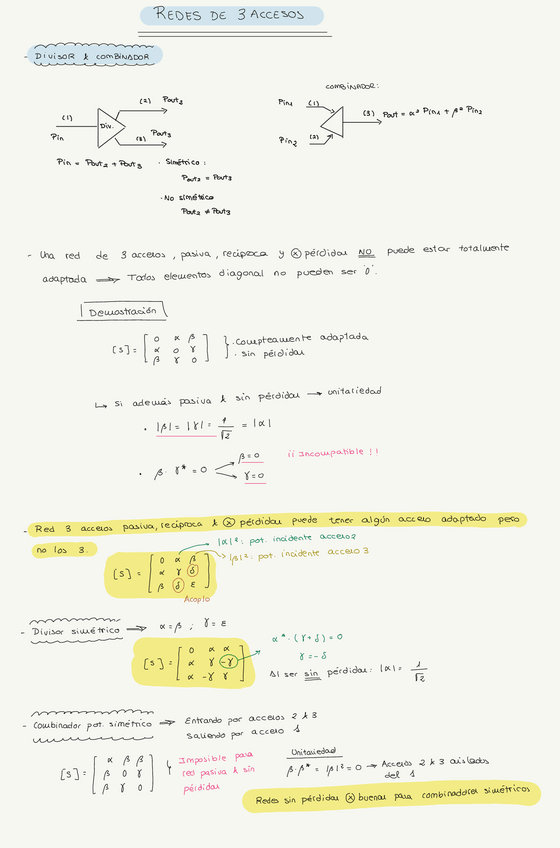 REDES DE 3 ACCESOS
- DIVISOR & COMBINADOR
COMBINADOR:
(1)
Pin
Div.
(2) Pout2
(3) Pout3
Pin = Pout2 + Pout3
· Simétrico:
Pout2 = Pout3
· No simétrico
Pout2 ≠ Pout3
Pin1 (1)
Pin2 (2)
(3) Pout = α² Pin1 + β² Pin2
- Una red de 3 accesos, pasiva, recíproca y ⊗ pérdidas NO puede estar totalmente
adaptada ⟹ Todos elementos diagonal no pueden ser '0'.
Demostración
[S] = [ 0 α β
α 0 γ
β γ 0 ]
} · Completamente adaptada
· sin pérdidas
↳ Si además pasiva & sin pérdidas → unitariedad
· |β| = |γ| = 1/√2 = |α|
· β · γ* = 0
β = 0
γ = 0
¡¡ Incompatible !!
- Red 3 accesos pasiva, recíproca & ⊗ pérdidas puede tener algún acceso adaptado pero
no los 3.
[S] = [ 0 α β
α γ δ
β δ ε ]
|α|²: pot. incidente acceso 2
|β|²: pot. incidente acceso 3
Acoplo
- Divisor simétrico ⟹ α = β ; γ = ε
[S] = [ 0 α α
α γ -γ
α -γ γ ]
α* · (γ + δ) = 0
γ = -δ
Al ser sin pérdidas: |α| = 1/√2
- Combinador pot. simétrico ⟹ Entrando por accesos 2 & 3
Saliendo por acceso 1
[S] = [ α β β
β 0 γ
β γ 0 ]
Imposible para
red pasiva & sin
pérdidas
Unitariedad
β · β* = |β|² = 0 → Accesos 2 & 3 aislados
del 1
Redes sin pérdidas ⊗ buenas para combinadores simétricos